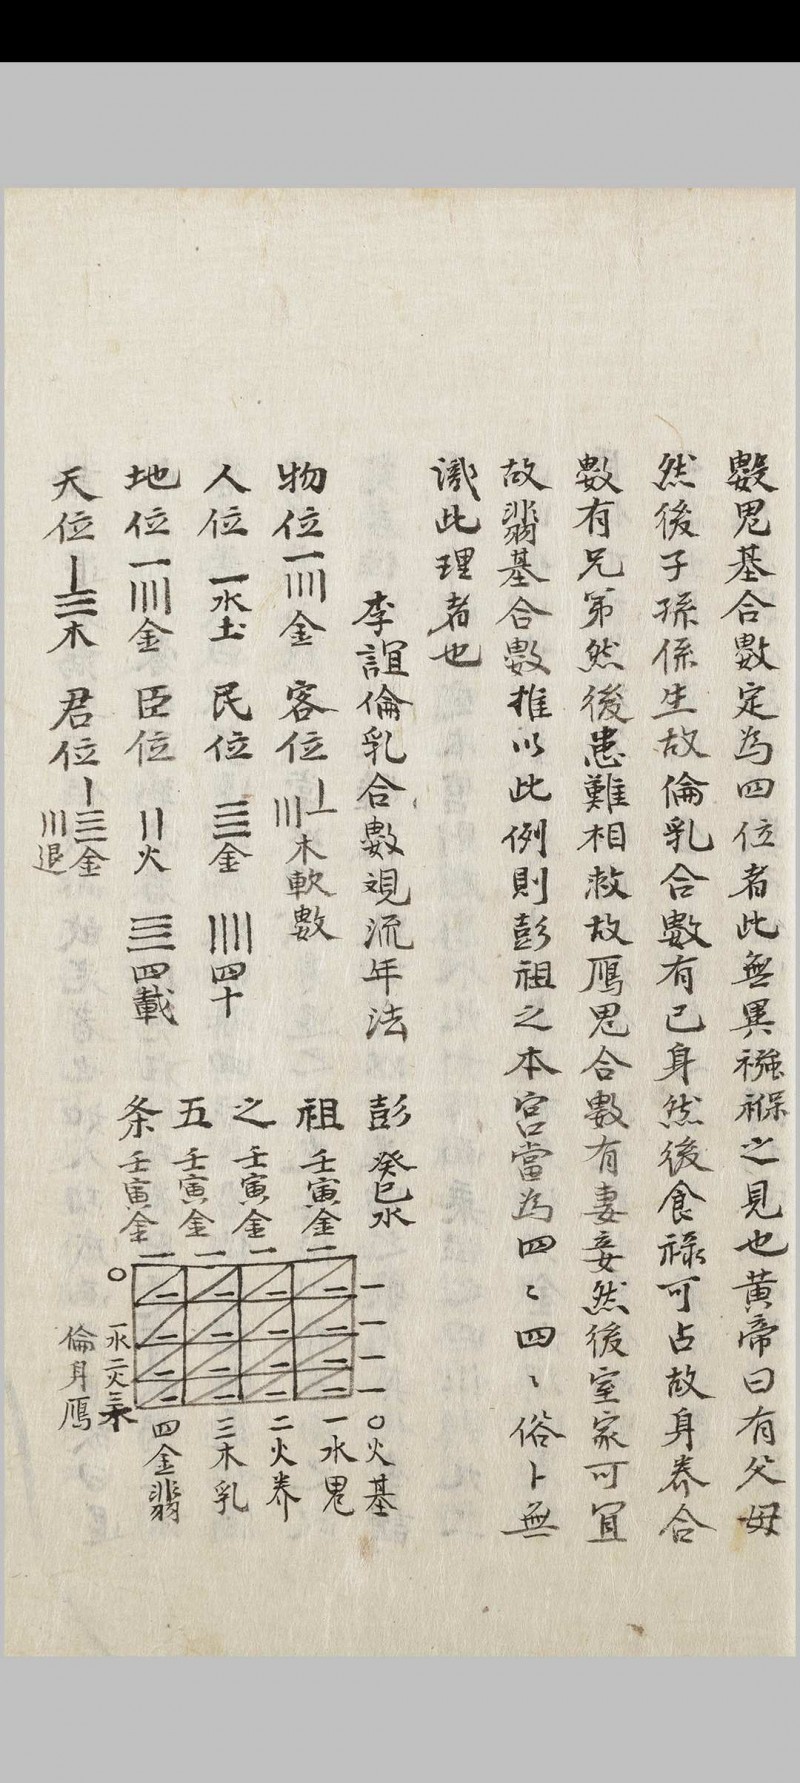 數鬼基合數定為四位者此無異襁褓之見也黃帝曰有父母
然後子孫係生故倫乳合數有已身然後食祿可占故身养合
數有兄弟然後患難相救故鴈鬼合數有妻妾然後室家可宜
故翡基合數推以此例則彭祖之本宮當為四〻四〻俗卜無
識此理者也
李誼倫乳合數覌流年法
物位 一 〣 金 客位 木軟數
人位 一 水土 民位 金 四十
地位 一 〣 金 臣位 〢 火 四載
天位 木 君位 金 〣 退
彭 癸巳水
祖 壬寅金
之 壬寅金
五 壬寅金
条 壬寅金
二 二 二 二
一 一 一 一
二 二 二 二
二 二 二 二
二 二 二 二
二 二 二 二
〇火基
一水鬼
二火养
三木乳
四金翡
〇
一水 二火 三木
倫身鴈